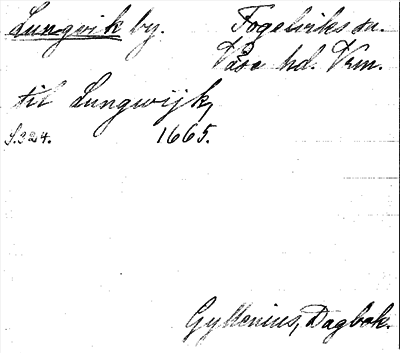 Lungvik by. Fogelviks sn.
Väse hd. Vrm.
til Lungwijk,
S.324. 1665.
Gyllenius, Dagbok.